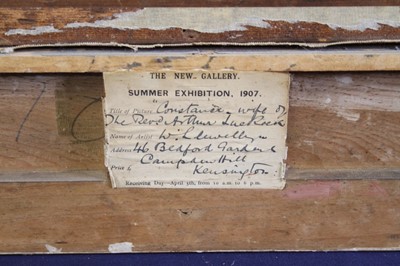 THE NEW GALLERY.
SUMMER EXHIBITION, 1907.
Title of Picture Constance, wife of
The Revd Arthur
Name of Artist W. Llewellyn
Address 46 Bedford Gardens
Campden Hill
Price £ Kensington
Receiving Day—April 4th, from 10 a.m. to 6 p.m.